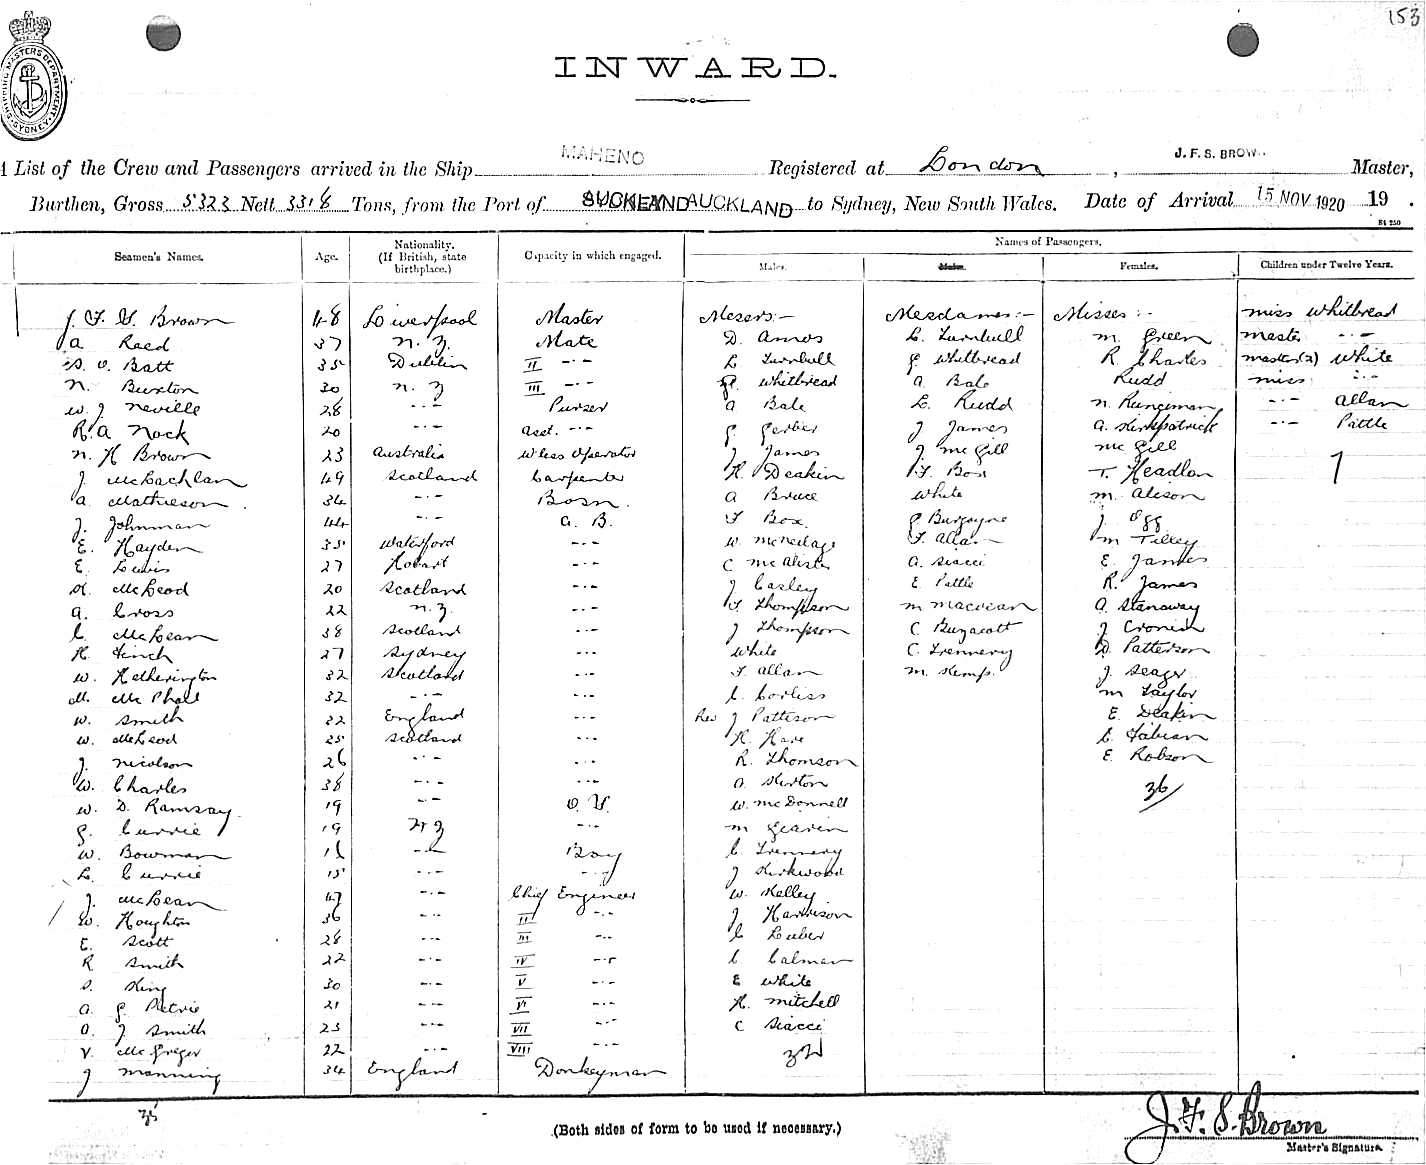 153
SHIPPING MASTERS DEPARTMENT SYDNEY
INWARD.
List of the Crew and Passengers arrived in the Ship MAHENO Registered at London, J. F. S. BROWN Master,
Burthen, Gross 5323 Nett 3318 Tons, from the Port of AUCKLAND to Sydney, New South Wales. Date of Arrival 15 NOV 1920 19 .
Names of Passengers.
Seamen's Names. Age. Nationality. (If British, state birthplace.) Capacity in which engaged. Males. Males. Females. Children under Twelve Years.
J. F. S. Brown 48 Liverpool Master Messrs:- Mesdames:- Misses:- Miss Whitbread
A Reed 37 N.Z. Mate D. Amos L. Turnbull M. Green Master -·-
Batt 35 Dublin II -·- L Turnbull G. Whitbread R Charles Master(2) White
N. Buxton 30 N.Z III -·- Whitbread A. Bale Rudd Miss -·-
W. J Neville 28 -·- Purser A Bale L. Rudd N. Runciman -·- Allan
R. A Nock 20 -·- Asst. -·- G. Gerber J James A. Kirkpatrick -·- Pattle
N. H Brown 23 Australia W'less Operator J James J. McGill McGill 7
J. McLachlan 49 Scotland Carpenter H. Deakin F. Box T. Headlan
A. Mathieson 34 -·- Bosn. A Bruce White M. Alison
J. Johnman 44 -·- A. B. F Box G Burgoyne J. Ogg
E. Hayden 35 Waterford -·- W. McNeilage F. Allan M Tilley
E. Lewis 27 Hobart -·- C McAlister A. Siacci E. James
McLeod 20 Scotland -·- J Casley E. Pattle R. James
A. Cross 22 N.Z. -·- F. Thompson M Maclean A. Stanaway
C. McLean 38 Scotland -·- J Thompson C. Buzacott J Cronin
H. Finch 27 Sydney -·- White C. Trennery D. Patterson
W. Hetherington 32 Scotland -·- F. Allan M. Kemp. J. Seager
M. McPhail 32 -·- C. Corliss M Taylor
W. Smith 22 England -·- Rev J Pattison E. Deakin
W. McLeod 25 Scotland -·- H. Hare C. Fabian
J. Nicolson 26 -·- -·- R. Thomson E. Robson
W. Charles 38 -·- -·- A. Skirton 36/
W. D. Ramsay 19 -·- O. S. W. McDonnell
G. Currie 19 NZ -·- M Gearin
W. Bowman 16 -·- Boy C Trennery
L. Currie 15 -·- -·- J Kirkwood
J. McLean 47 -·- Chief Engineer W. Kelley
W. Houghton 36 -·- II -·- J Harrison
E. Scott 28 -·- III -·- C Luber
R Smith 22 -·- IV -·- C Calman
S. King 30 -·- V -·- E White
A. G. Petrie 21 -·- VI -·- H. Mitchell
A. J Smith 23 -·- VII -·- C Siacci
V. McGregor 22 -·- VIII -·-
J Manning 34 England Donkeyman
35
(Both sides of form to be used if necessary.)
J. F. S. Brown
Master's Signature.